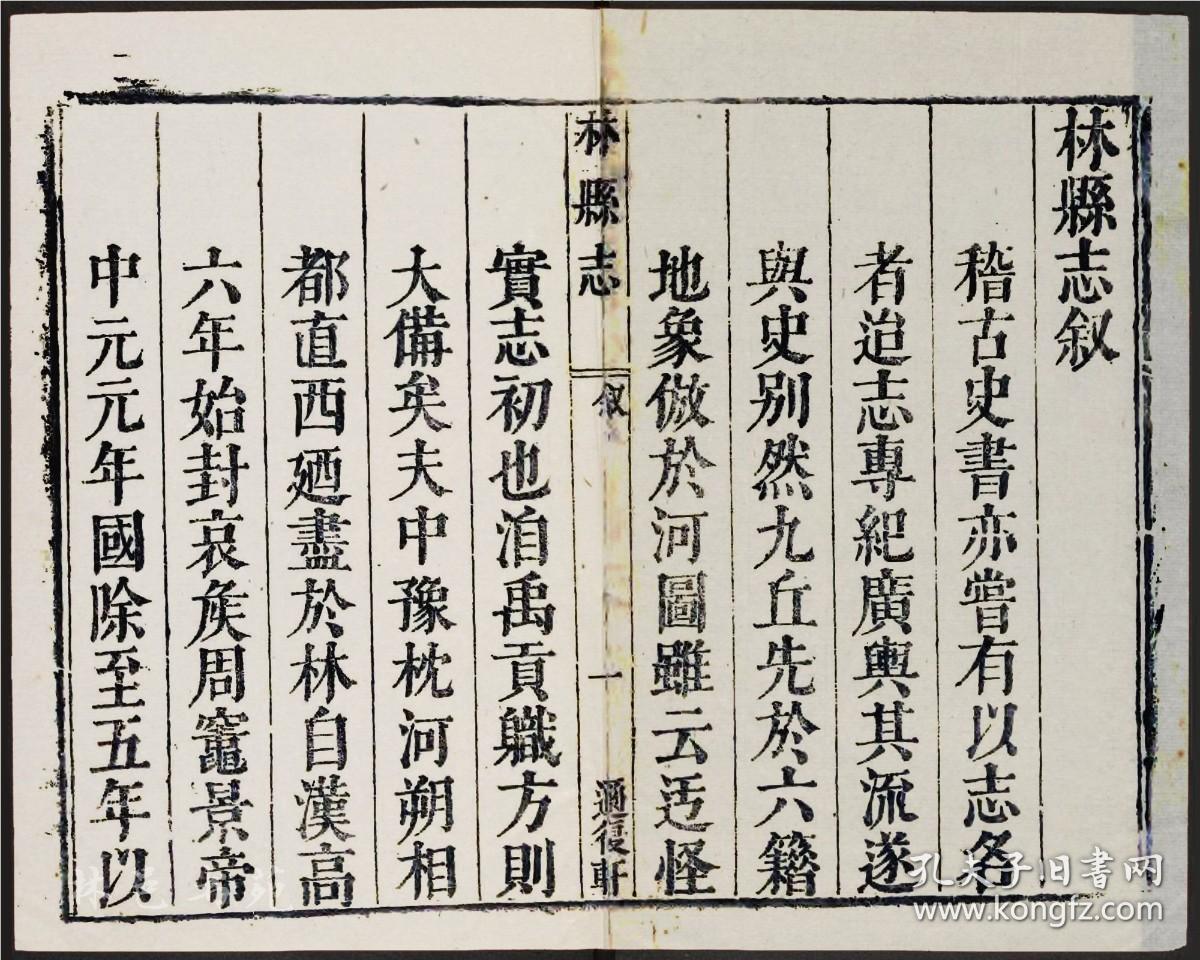 林縣志叙
稽古史書亦嘗有以志名
者迨志專紀廣輿其流遂
與史別然九丘先於六籍
地象倣於河圖雖云迃怪
林縣志 叙 一 適復軒
實志初也洎禹貢職方則
大備矣夫中豫枕河朔相
都直西廼盡於林自漢高
六年始封哀矦周竈景帝
中元元年國除至五年以
孔夫子旧书网
www.kongfz.com